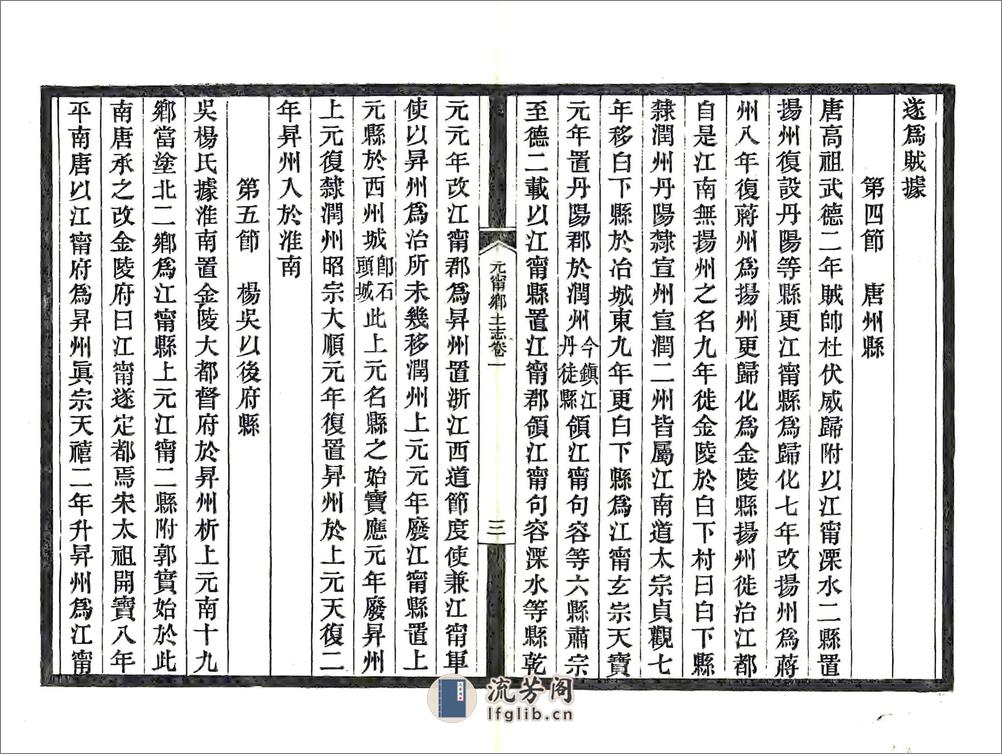 遂爲賊據
第四節　唐州縣
唐高祖武德二年賊帥杜伏威歸附以江甯溧水二縣置
揚州復設丹陽等縣更江甯縣爲歸化七年改揚州爲蔣
州八年復蔣州爲揚州更歸化爲金陵縣揚州徙治江都
自是江南無揚州之名九年徙金陵於白下村曰白下縣
隸潤州丹陽隸宣州宣潤二州皆屬江南道太宗貞觀七
年移白下縣於冶城東九年更白下縣爲江甯玄宗天寶
元年置丹陽郡於潤州今鎮江丹徒縣領江甯句容等六縣肅宗
至德二載以江甯縣置江甯郡領江甯句容溧水等縣乾
元甯鄉土志卷一
三
元元年改江甯郡爲昇州置浙江西道節度使兼江甯軍
使以昇州爲治所未幾移潤州上元元年廢江甯縣置上
元縣於西州城卽石頭城此上元名縣之始寶應元年廢昇州
上元復隸潤州昭宗大順元年復置昇州於上元天復二
年昇州入於淮南
第五節　楊吳以後府縣
吳楊氏據淮南置金陵大都督府於昇州析上元南十九
鄉當塗北二鄉爲江甯縣上元江甯二縣附郭實始於此
南唐承之改金陵府曰江甯遂定都焉宋太祖開寶八年
平南唐以江甯府爲昇州眞宗天禧二年升昇州爲江甯
流芳阁
lfglib.cn